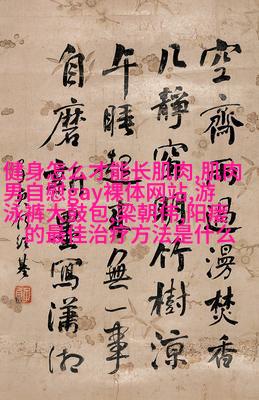 健身怎么才能长肌肉,肌肉
男自慰gay裸体网站,游
泳裤大鼓包,梁朝伟,阳痿
的最佳治疗方法是什么
空齋過漫焚香
几靜窗竹樹涼
午睡無一事
自磨寫瀟湘